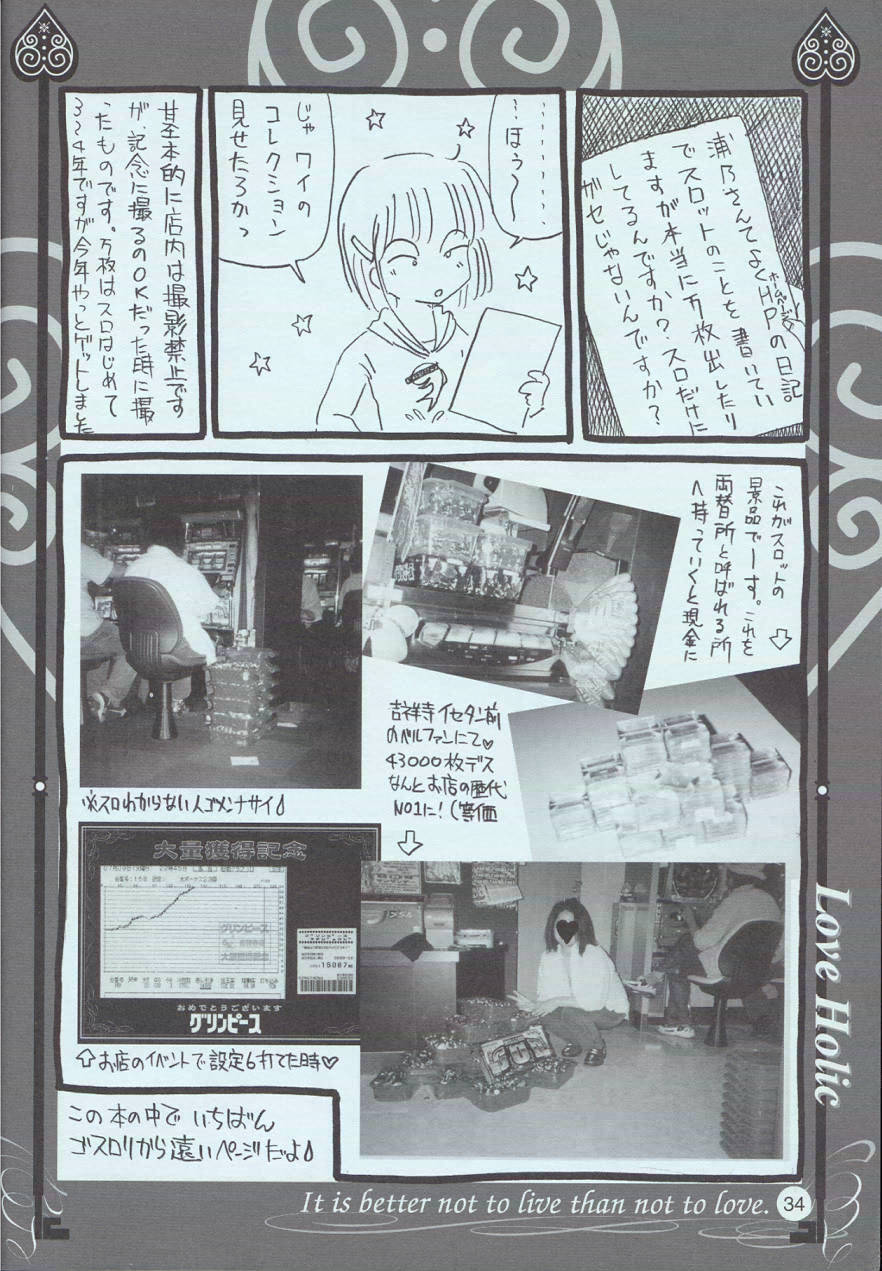 浦乃さんてよくHPの日記
ホームページ
でスロットのことを書いてい
ますが本当に万枚出したり
してるんですか?スロだけに
ガセじゃないんですか?
………
…ほう〜
じゃワイの
コレクション
見せたろかっ
基本的に店内は撮影禁止です
が、記念に撮るのOKだった時に撮
ったものです。万枚はスロはじめて
3〜4年ですが今年やっとゲットしました
これがスロットの
景品でーす。これを
両替所と呼ばれる所
へ持っていくと現金に
⇩
吉祥寺イセタン前
のベルファンにて♡
43000枚デス
なんとお店の歴代
NO1に!(等価
⇩
※スロわからない人ゴメンナサイ
大量獲得記念
グリンピース
15067
おめでとうございます
グリンピース
⇧お店のイベントで設定6打てた時♡
この本の中で いちばん
ゴスロリから遠いページだよ
Love Holic
It is better not to live than not to love.
34